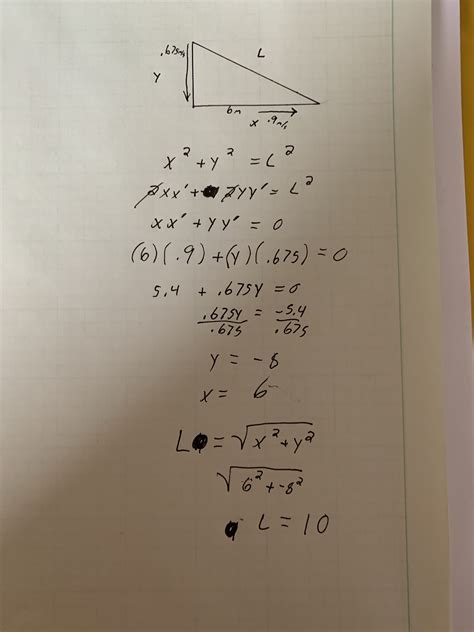 .675m/s
L
Y
6m
x .9m/s
x² + y² = L²
2xx' + 2yy' = L²
xx' + yy' = 0
(6)(.9) + (y)(.675) = 0
5.4 + .675y = 0
.675y/.675 = -5.4/.675
y = -8
x = 6
L = √x² + y²
√6² + -8²
L = 10